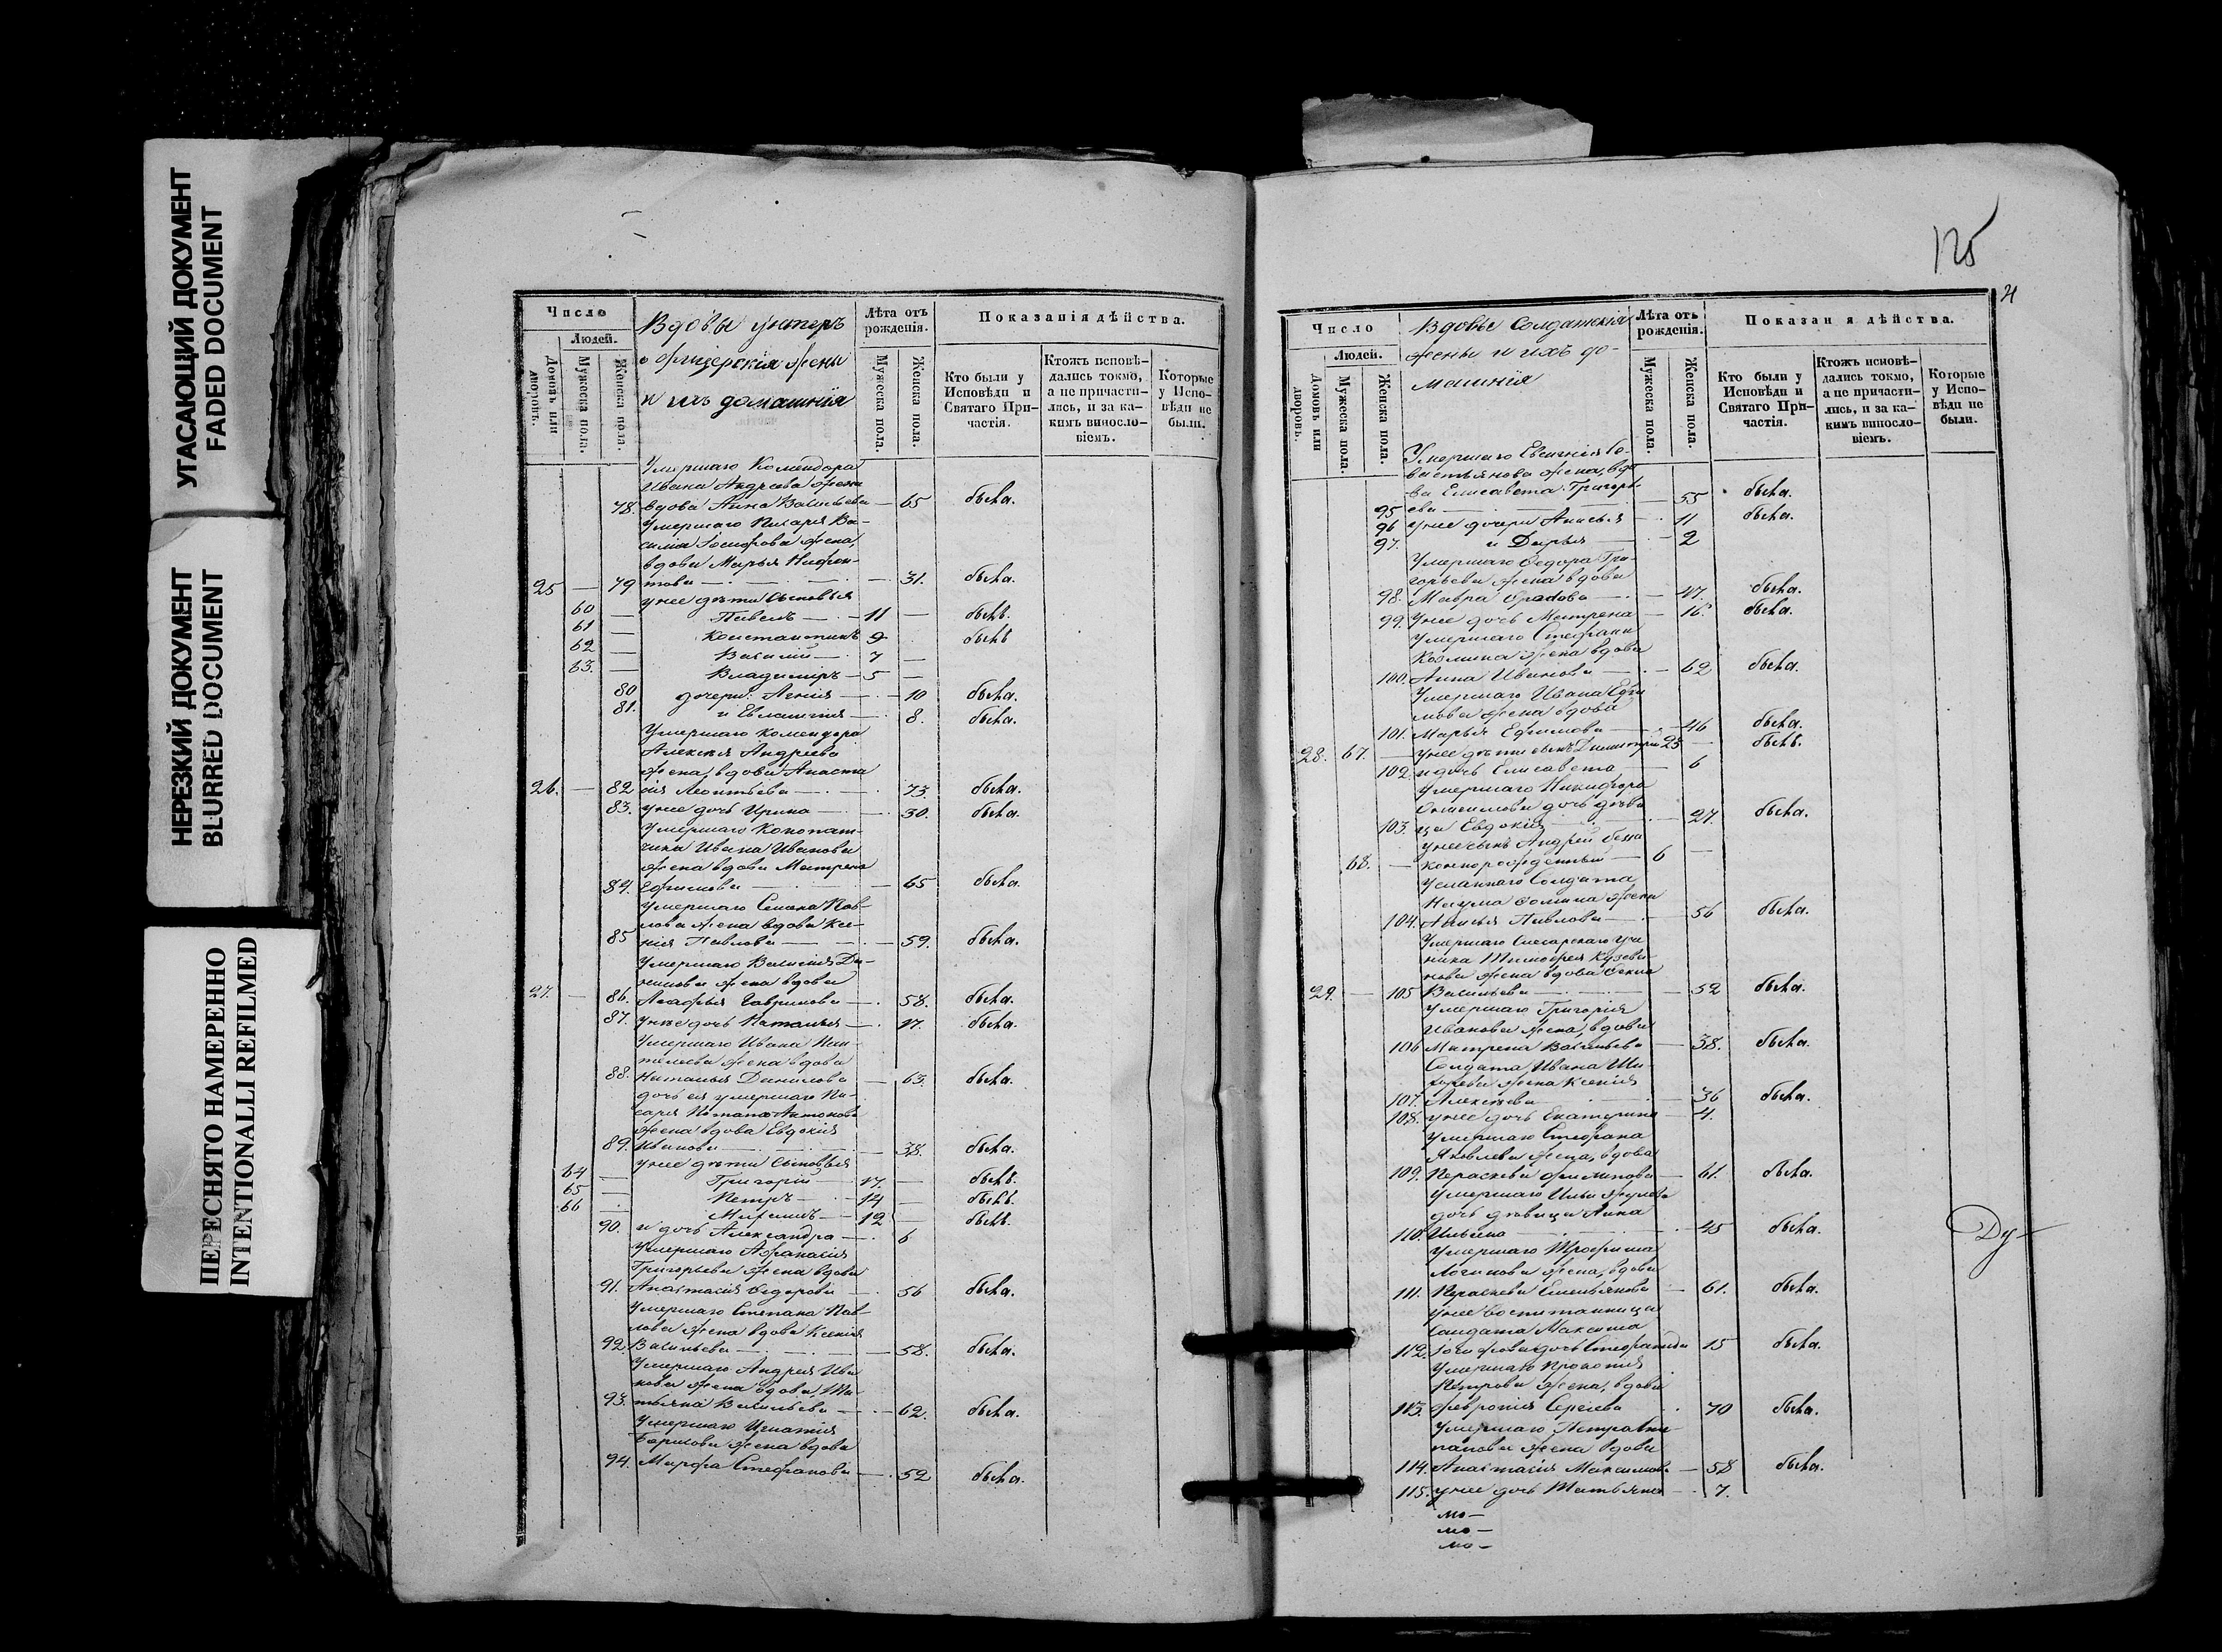 УГАСАЮЩИЙ ДОКУМЕНТ
FADED DOCUMENT
НЕРЕЗКИЙ ДОКУМЕНТ
BLURRED DOCUMENT
ПЕРЕСНЯТО НАМЕРЕННО
INTENTIONALLI REFILMED
Число
Людей.
Домовъ или дворовъ.
Мужеска пола.
Женска пола.
Вдовы унтеръ
офицерскія жены
и ихъ домашнія
Лѣта отъ рожденія.
Мужеска пола.
Женска пола.
Показанія дѣйства.
Кто были у Исповѣди и Святаго Причастія.
Ктожъ исповѣ-
дались токмо,
а не причасти-
лись, и за ка-
кимъ винословіемъ.
Которые
у Испо-
вѣди не
были.
Умершаго Комендора
Ивана Андреева жена
78. вдова Анна Васильева — 65 была.
Умершаго Писаря Ва-
силія Іосифова жена,
вдова Марья Нифон-
25 — 79 това — 31. была.
унее дѣти сыновья
60 — Павелъ — 11 — былъ.
61 — Константинъ 9 былъ
62 — Василій — 7 —
63. — Владиміръ — 5 —
80 дочери: Агнія — 10 была.
81. и Евлампія — 8. была.
Умершаго комендора
Алексѣя Андреева
жена, вдова Анаста
26. — 82 сія Леонтьева — 73 была.
83. унее дочь Ирина — 30. была.
Умершаго Конопат-
чика Ивана Иванова
жена вдова Матрена
84. Ефимова — 65 была.
Умершаго Семена Пав-
лова жена вдова Ксе-
85 нія Павлова — 59. была.
Умершаго Василія Да-
нилова жена вдова
27. — 86. Агафья Гаврилова — 58. была.
87. унее дочь Наталья — 17. была.
Умершаго Ивана Пан-
телеева жена вдова
88. Наталья Данилова — 63. была.
дочь ея умершаго Пи-
саря Игната Антонова
жена вдова Евдокія
89. Иванова — 38. была.
унее дѣти сыновья
64 — Григорій — 17. — былъ.
65 — Петръ — 14 — былъ.
66 Михаилъ — 12 — былъ.
90. и дочь Александра — 6
Умершаго Афанасія
Григорьева жена вдова
91. Анастасія Федорова — 56 была.
Умершаго Степана Пав-
лова жена вдова Ксенія
92. Васильева — 58. была.
Умершаго Андрея Ива
нова жена вдова, Та-
93. тьяна Васильева — 62. была.
Умершаго Игнатія
Борисова жена вдова
94. Марфа Стефанова — 52 была.
125
Число
Людей.
Домовъ или дворовъ.
Мужеска пола.
Женска пола.
Вдовы Солдатскія
жены и ихъ до-
машнія
Лѣта отъ рожденія.
Мужеска пола.
Женска пола.
Показан я дѣйства.
Кто были у Исповѣди и Святаго Причастія.
Ктожъ исповѣ-
дались токмо,
а не причасти-
лись, и за ка-
кимъ винословіемъ.
Которые
у Испо-
вѣди не
были.
Умершаго Евгенія Се-
вастьянова жена, вдо
ва Елисавета Григорь-
95 ева — 55 была.
96 унее дочери Анисья — 11 была.
97. и Дарья — 2
Умершаго Федора Гри-
горьева жена вдова
98. Мавра — 47. была.
99. Унее дочь Матрена — 16. была.
Умершаго Стефана
Козмина жена вдова
100. Анна Иванова — 62 была.
Умершаго Ивана Ефи
мова жена вдова
101. Марья Ефимова — 46 была.
28. 67. — унее дѣти сынъ Димитрій 25 — былъ.
102. и дочь Елисавета — 6
Умершаго Никифора
дочь дѣви
103. ца Евдокія — 27. была.
унее сынъ Андрей беза
68. — коннорожденный — 6 —
Солдата
Наума жена
104. Анисья Павлова — 56 была.
Умершаго Слесарскаго уче
ника Тимофея
нова жена вдова
29. — 105 Васильева — 52 была.
Умершаго Григорія
Иванова жена, вдова
106 Матрена Васильева — 38. была.
Солдата Ивана
жена Ксенія
107. Алексѣева — 36 была.
108. унее дочь Екатерина — 4.
Умершаго Стефана
Яковлева жена, вдова
109. Параскева Филипова — 61. была.
Умершаго Ильи
дочь дѣвица Анна
110. Ильина — 45 была.
Умершаго Трофима
Логинова жена, вдова
111. Параскева Емельянова — 61. была.
унее воспитанница
Солдата Максима
112. дочь Стефанида 15 была.
Умершаго Прокопія
Петрова жена, вдова
113. Февронія Сергѣева 70 была.
Умершаго Петра
панова жена вдова
114. Анастасія Максимова — 58 была.
115. унее дочь Татьяна — 7.
Ду—
мо—
мо—
мо—